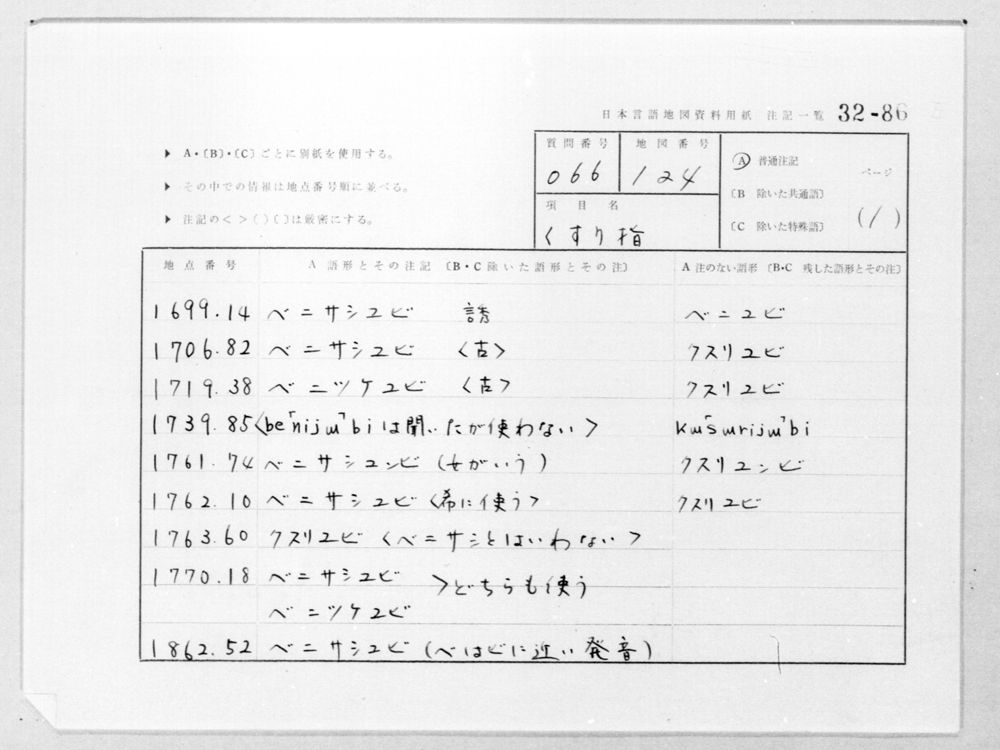 日本言語地図資料用紙 注記一覧 32-86
▶ A・〔B〕・〔C〕ごとに別紙を使用する。
▶ その中での情報は地点番号順に並べる。
▶ 注記の< >( )〔 〕は厳密にする。
質問番号 地図番号
066 124
項目名
くすり指
Ⓐ 普通注記
〔B 除いた共通語〕
〔C 除いた特殊語〕
ページ
(1)
地点番号 A 語形とその注記〔B・C 除いた語形とその注〕 A 注のない語形〔B・C 残した語形とその注〕
1699.14 ベニサシユビ 誘 ベニユビ
1706.82 ベニサシユビ <古> クスリユビ
1719.38 ベニツケユビ <古> クスリユビ
1739.85 <be「nijɯ」biは聞いたが使わない> kɯ「sɯrijɯ」bi
1761.74 ベニサシユンビ (女がいう) クスリユンビ
1762.10 ベニサシユビ <希に使う> クスリユビ
1763.60 クスリユビ <ベニサシとはいわない>
1770.18 ベニサシユビ >どちらも使う
ベニツケユビ
1862.52 ベニサシユビ (ベはビに近い発音)